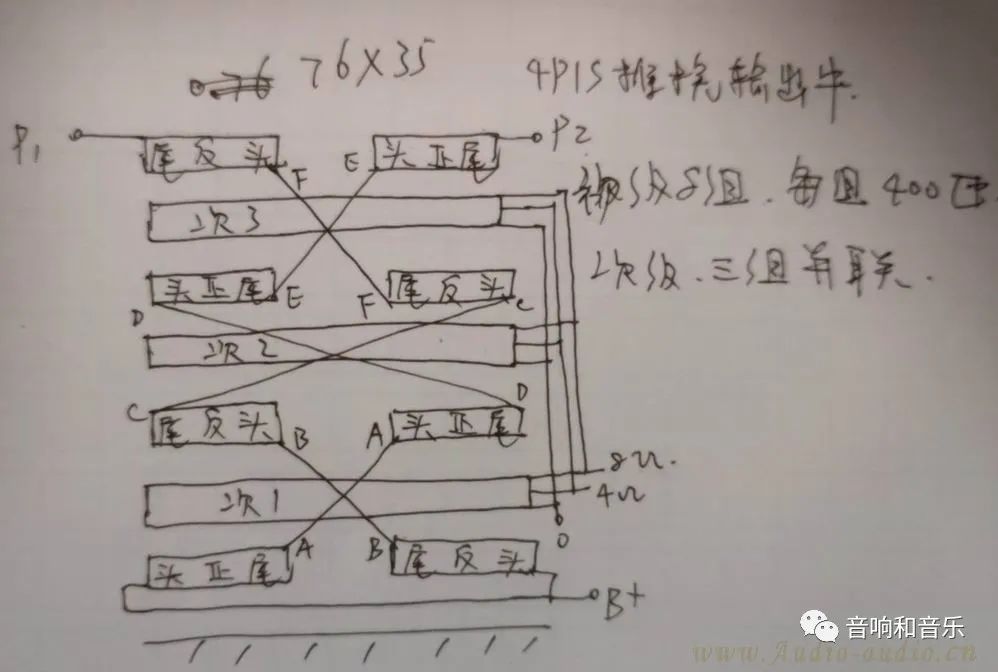 76 76X35
4P1S推挽输出牛.
P1 尾反头 F E 头正尾 P2
初级8组.每组400匝
2次3
2次级.三组并联.
头正尾 E F 尾反头 C
D
2次2
C 尾反头 B A 头正尾 D
8Ω.
2次1 4Ω
0
头正尾 A B 尾反头
B+
音响和音乐
www.Audio-audio.cn